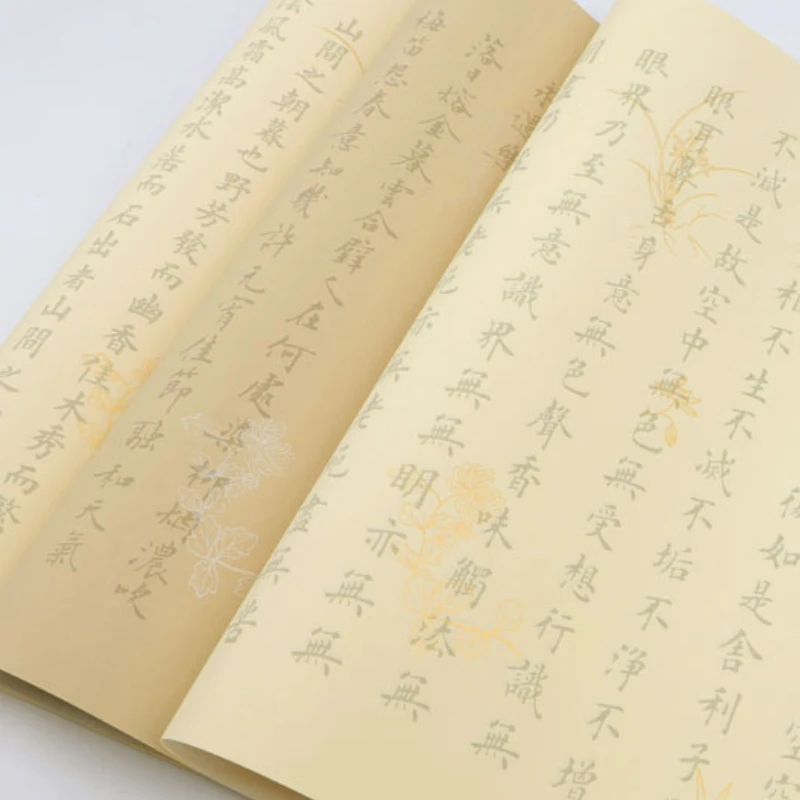 復如是舍利子
相不生不滅不垢不淨不增
不滅是故空中無色無受想行識無
眼耳鼻舌身意無色聲香味觸法無
眼界乃至無意識界無無明亦無無
乃至無老死亦無老死盡無
永遇樂
落日熔金暮雲合璧人在何處染柳煙濃吹
梅笛怨春意知幾許元宵佳節融和天氣
山間之朝暮也野芳發而幽香佳木秀而繁
風霜高潔水落而石出者山間之